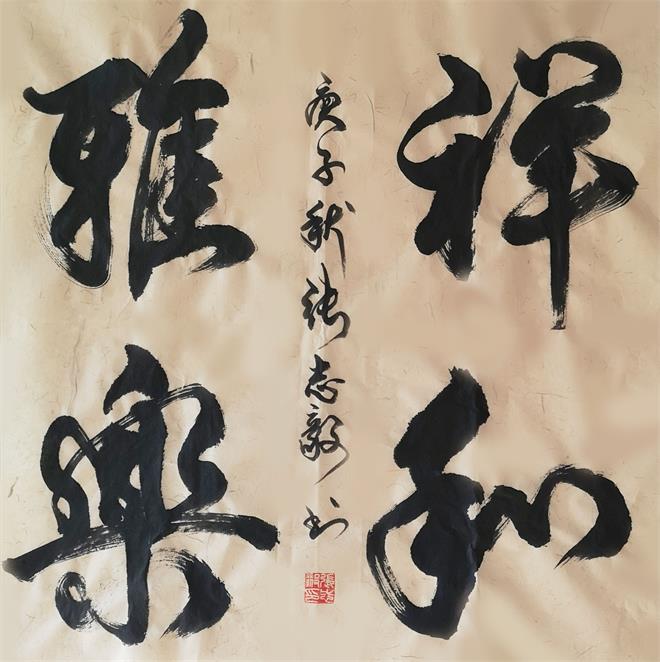 祥和
雅樂
庚子秋張志毅书